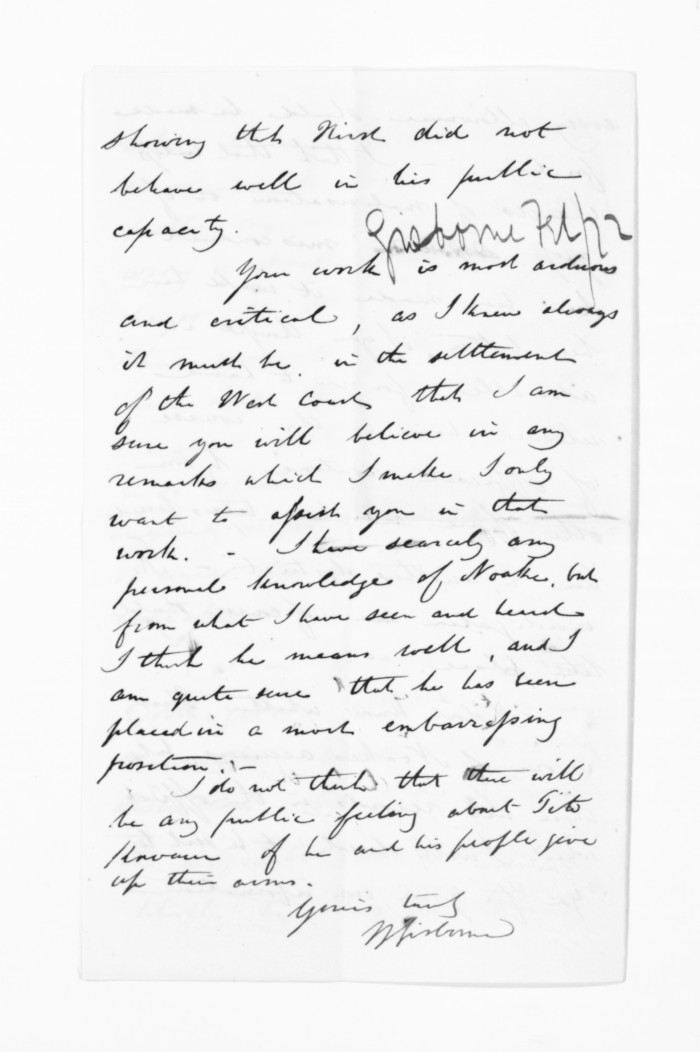 showing that Hirst did not
behave well in his public
capacity.
Gisborne Feb/72
Your work is most arduous
and critical, as I knew always
it must be, in the settlement
of the West Coast, that I am
sure you will believe in any
remarks which I make I only
want to assist you in that
work. - I have scarcely any
personal knowledge of Noake, but
from what I have seen and heard
I think he means well, and I
am quite sure that he has been
placed in a most embarrassing
position. -
I do not think that there will
be any public feeling about Tito
Kowaru if he and his people give
up their arms.
Yours truly
WGisborne